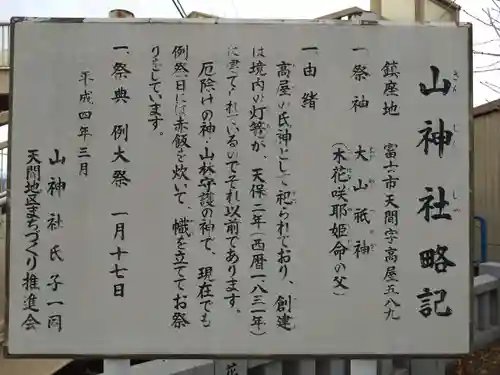 山神社略記
鎮座地 富士市天間字高屋五八九
一、祭神 大山祇神
(木花咲耶姫命の父)
一、由緒
高屋の氏神として祀られており、創建
は境内の灯篭が、天保二年(西暦一八三一年)
に建てられているのでそれ以前であります。
厄除けの神・山林守護の神で、現在でも
例祭日には赤飯を炊いて、幟を立ててお祭
りをしています。
一、祭典 例大祭 一月十七日
平成四年三月
山神社氏子一同
天間地区まちづくり推進会